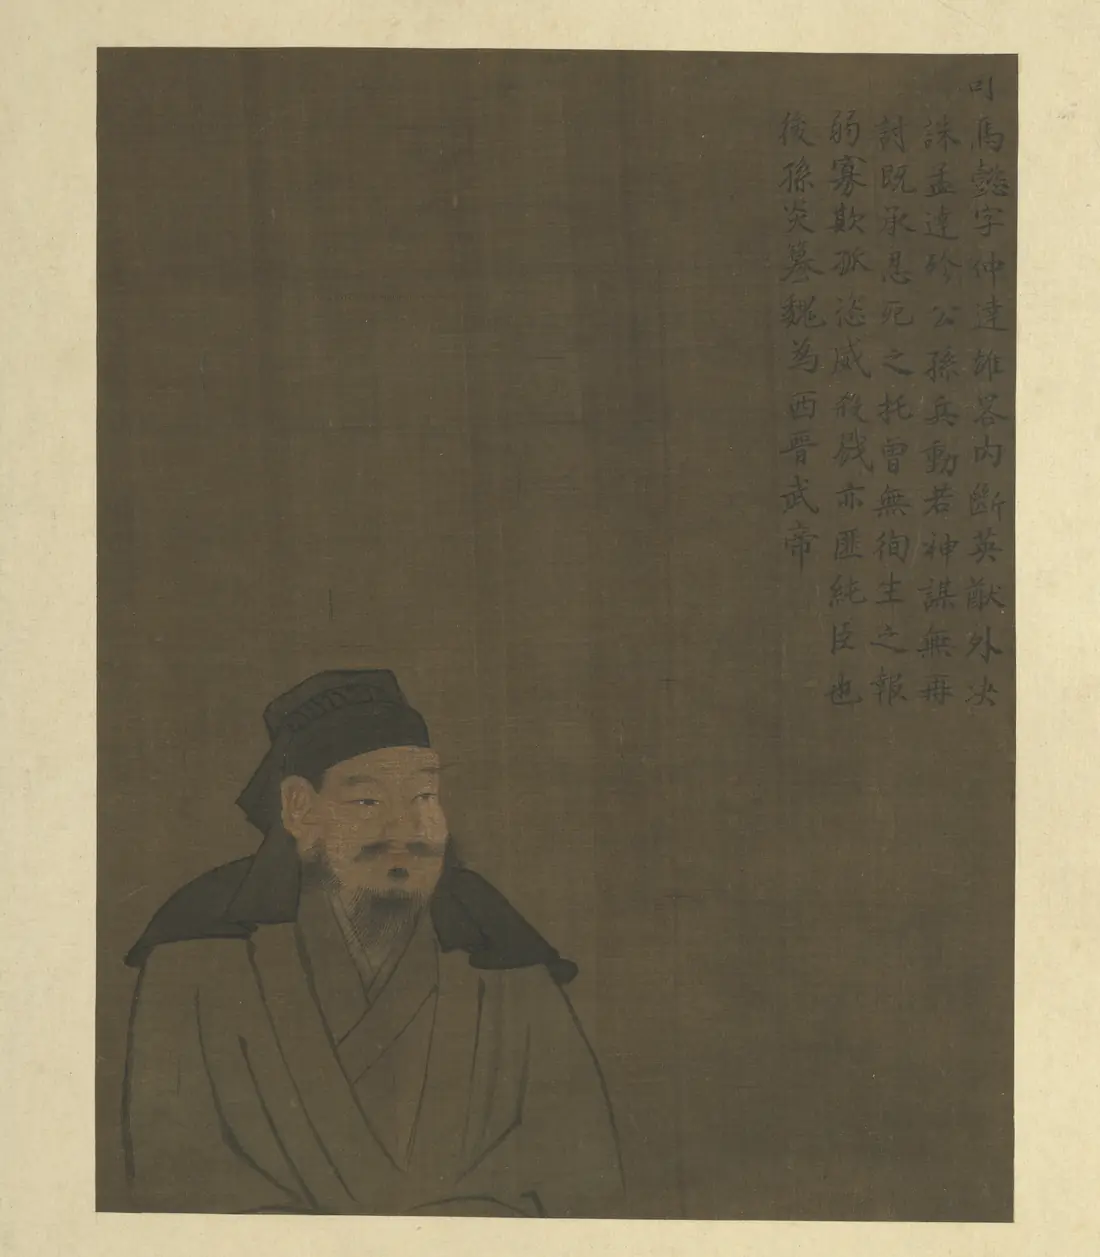 司馬懿字仲達雄畧内斷英猷外决
誅孟達殄公孫兵動若神謀無再
討既承忍死之托曾無徇生之報
弱寡欺孤恣威殺戮亦匪純臣也
後孫炎簒魏為西晋武帝